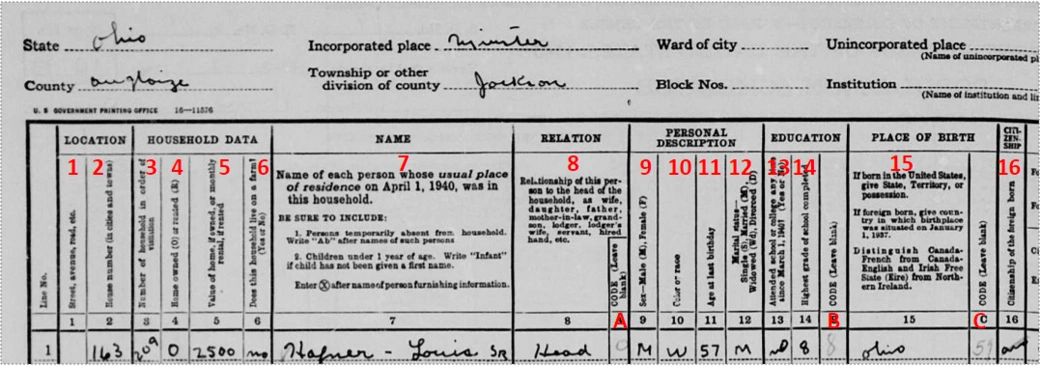 State Ohio Incorporated place Minster Ward of city Unincorporated place
(Name of unincorporated pl
County Auglaize Township or other division of county Jackson Block Nos. Institution
(Name of institution and lin
U. S. GOVERNMENT PRINTING OFFICE 16—11576
LOCATION HOUSEHOLD DATA NAME RELATION PERSONAL DESCRIPTION EDUCATION PLACE OF BIRTH CITIZENSHIP
1 2 3 4 5 6 7 8 9 10 11 12 13 14 15 16
Line No.
Street, avenue, road, etc.
House number (in cities and towns)
Number of household in order of visitation
Home owned (O) or rented (R)
Value of home, if owned, or monthly rental, if rented
Does this household live on a farm? (Yes or No)
Name of each person whose usual place
of residence on April 1, 1940, was in
this household.
BE SURE TO INCLUDE:
1. Persons temporarily absent from household.
Write "Ab" after names of such persons
2. Children under 1 year of age. Write "Infant"
if child has not been given a first name.
Enter ⓧ after name of person furnishing information.
Relationship of this per-
son to the head of the
household, as wife,
daughter, father,
mother-in-law, grand-
son, lodger, lodger's
wife, servant, hired
hand, etc.
CODE (Leave blank)
Sex—Male (M), Female (F)
Color or race
Age at last birthday
Marital status—
Single (S), Married (M),
Widowed (Wd), Divorced (D)
Attended school or college any
since March 1, 1940? (Yes or No)
Highest grade of school completed
CODE (Leave blank)
If born in the United States,
give State, Territory, or
possession.
If foreign born, give coun-
try in which birthplace
was situated on January
1, 1937.
Distinguish Canada-
French from Canada-
English and Irish Free
State (Eire) from North-
ern Ireland.
CODE (Leave blank)
Citizenship of the foreign born
1 2 3 4 5 6 7 8 A 9 10 11 12 13 14 B 15 C 16
1 163 209 O 2500 no Hafner - Louis Sr Head 0 M W 57 M no 8 8 Ohio 59